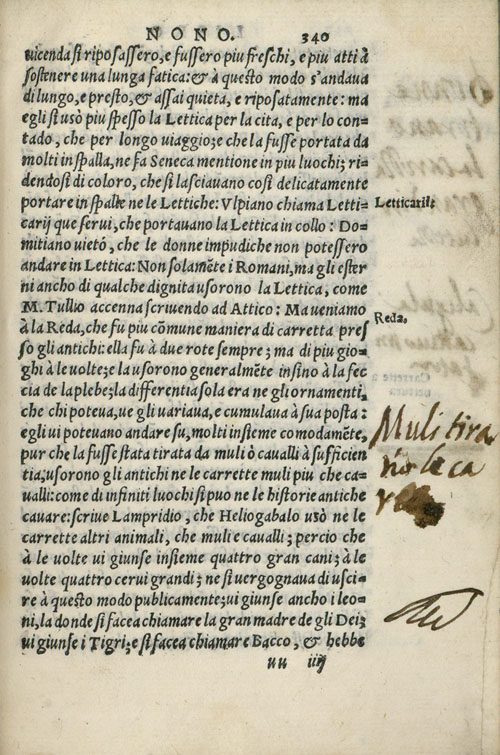 NONO. 340
uicenda si riposassero, e fussero piu freschi, e piu atti à
sostenere una lunga fatica: & à questo modo s'andaua
di lungo, e presto, & assai quieta, e riposatamente: ma
egli si usò piu spesso la Lettica per la cita, e per lo con=
tado, che per longo uiaggio; e che la fusse portata da
molti in spalla, ne fa Seneca mentione in piu luochi; ri=
dendosi di coloro, che si lasciauano cosi delicatamente
portare in spalle ne le Lettiche: Vlpiano chiama Letti=
carij que serui, che portauano la Lettica in collo: Do=
mitiano uietò, che le donne impudiche non potessero
andare in Lettica: Non solamẽte i Romani, ma gli ester
ni ancho di qualche dignita usorono la Lettica, come
M. Tullio accenna scriuendo ad Attico: Ma ueniamo
à la Reda, che fu piu cõmune maniera di carretta pres
so gli antichi: ella fu à due rote sempre; ma di piu gio=
ghi à le uolte; e la usorono generalmẽte insino à la fec
cia de la plebe; la differentia sola era ne gli ornamenti,
che chi poteua, ue gli uariaua, e cumulaua à sua posta:
egli ui poteuano andare su, molti insieme comodamẽte,
pur che la fusse stata tirata da muli ò caualli à sufficien
tia; usorono gli antichi ne le carrette muli piu che ca=
ualli: come di infiniti luochi si puo ne le historie antiche
cauare: scriue Lampridio, che Heliogabalo usò ne le
carrette altri animali, che muli e caualli; percio che
à le uolte ui giunse insieme quattro gran cani; à le
uolte quattro cerui grandi; ne si uergognaua di usci=
re à questo modo publicamente; ui giunse ancho i leo=
ni, la donde si facea chiamare la gran madre de gli Dei;
ui giunse i Tigri; e si facea chiamare Bacco, & hebbe
uu iiij
Letticarij.
Reda.
Muli tira
no le ca